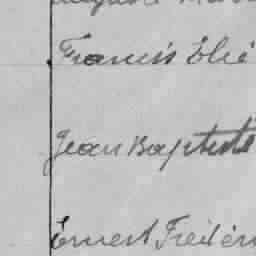 Francis Elie
Jean Baptiste
Ernest Frédéri